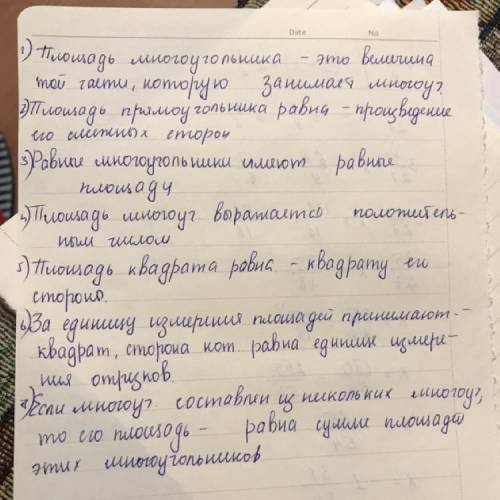 Date No
1) Площадь многоугольника - это величина
той части, которую занимает многоуг.
2) Площадь прямоугольника равна - процведение
его смежных сторон
3) Равные многоугольники имеют равные
площади
4) Площадь многоуг. выражается положитель-
ным числом
5) Площадь квадрата равна - квадрату его
стороно.
6) За единицу измерения площадей принимают -
квадрат, сторона кот. равна единице измере-
ния отрезков.
7) Если многоуг. составлен из нескольких многоуг,
то его площадь - равна сумме площадей
этих многоугольников